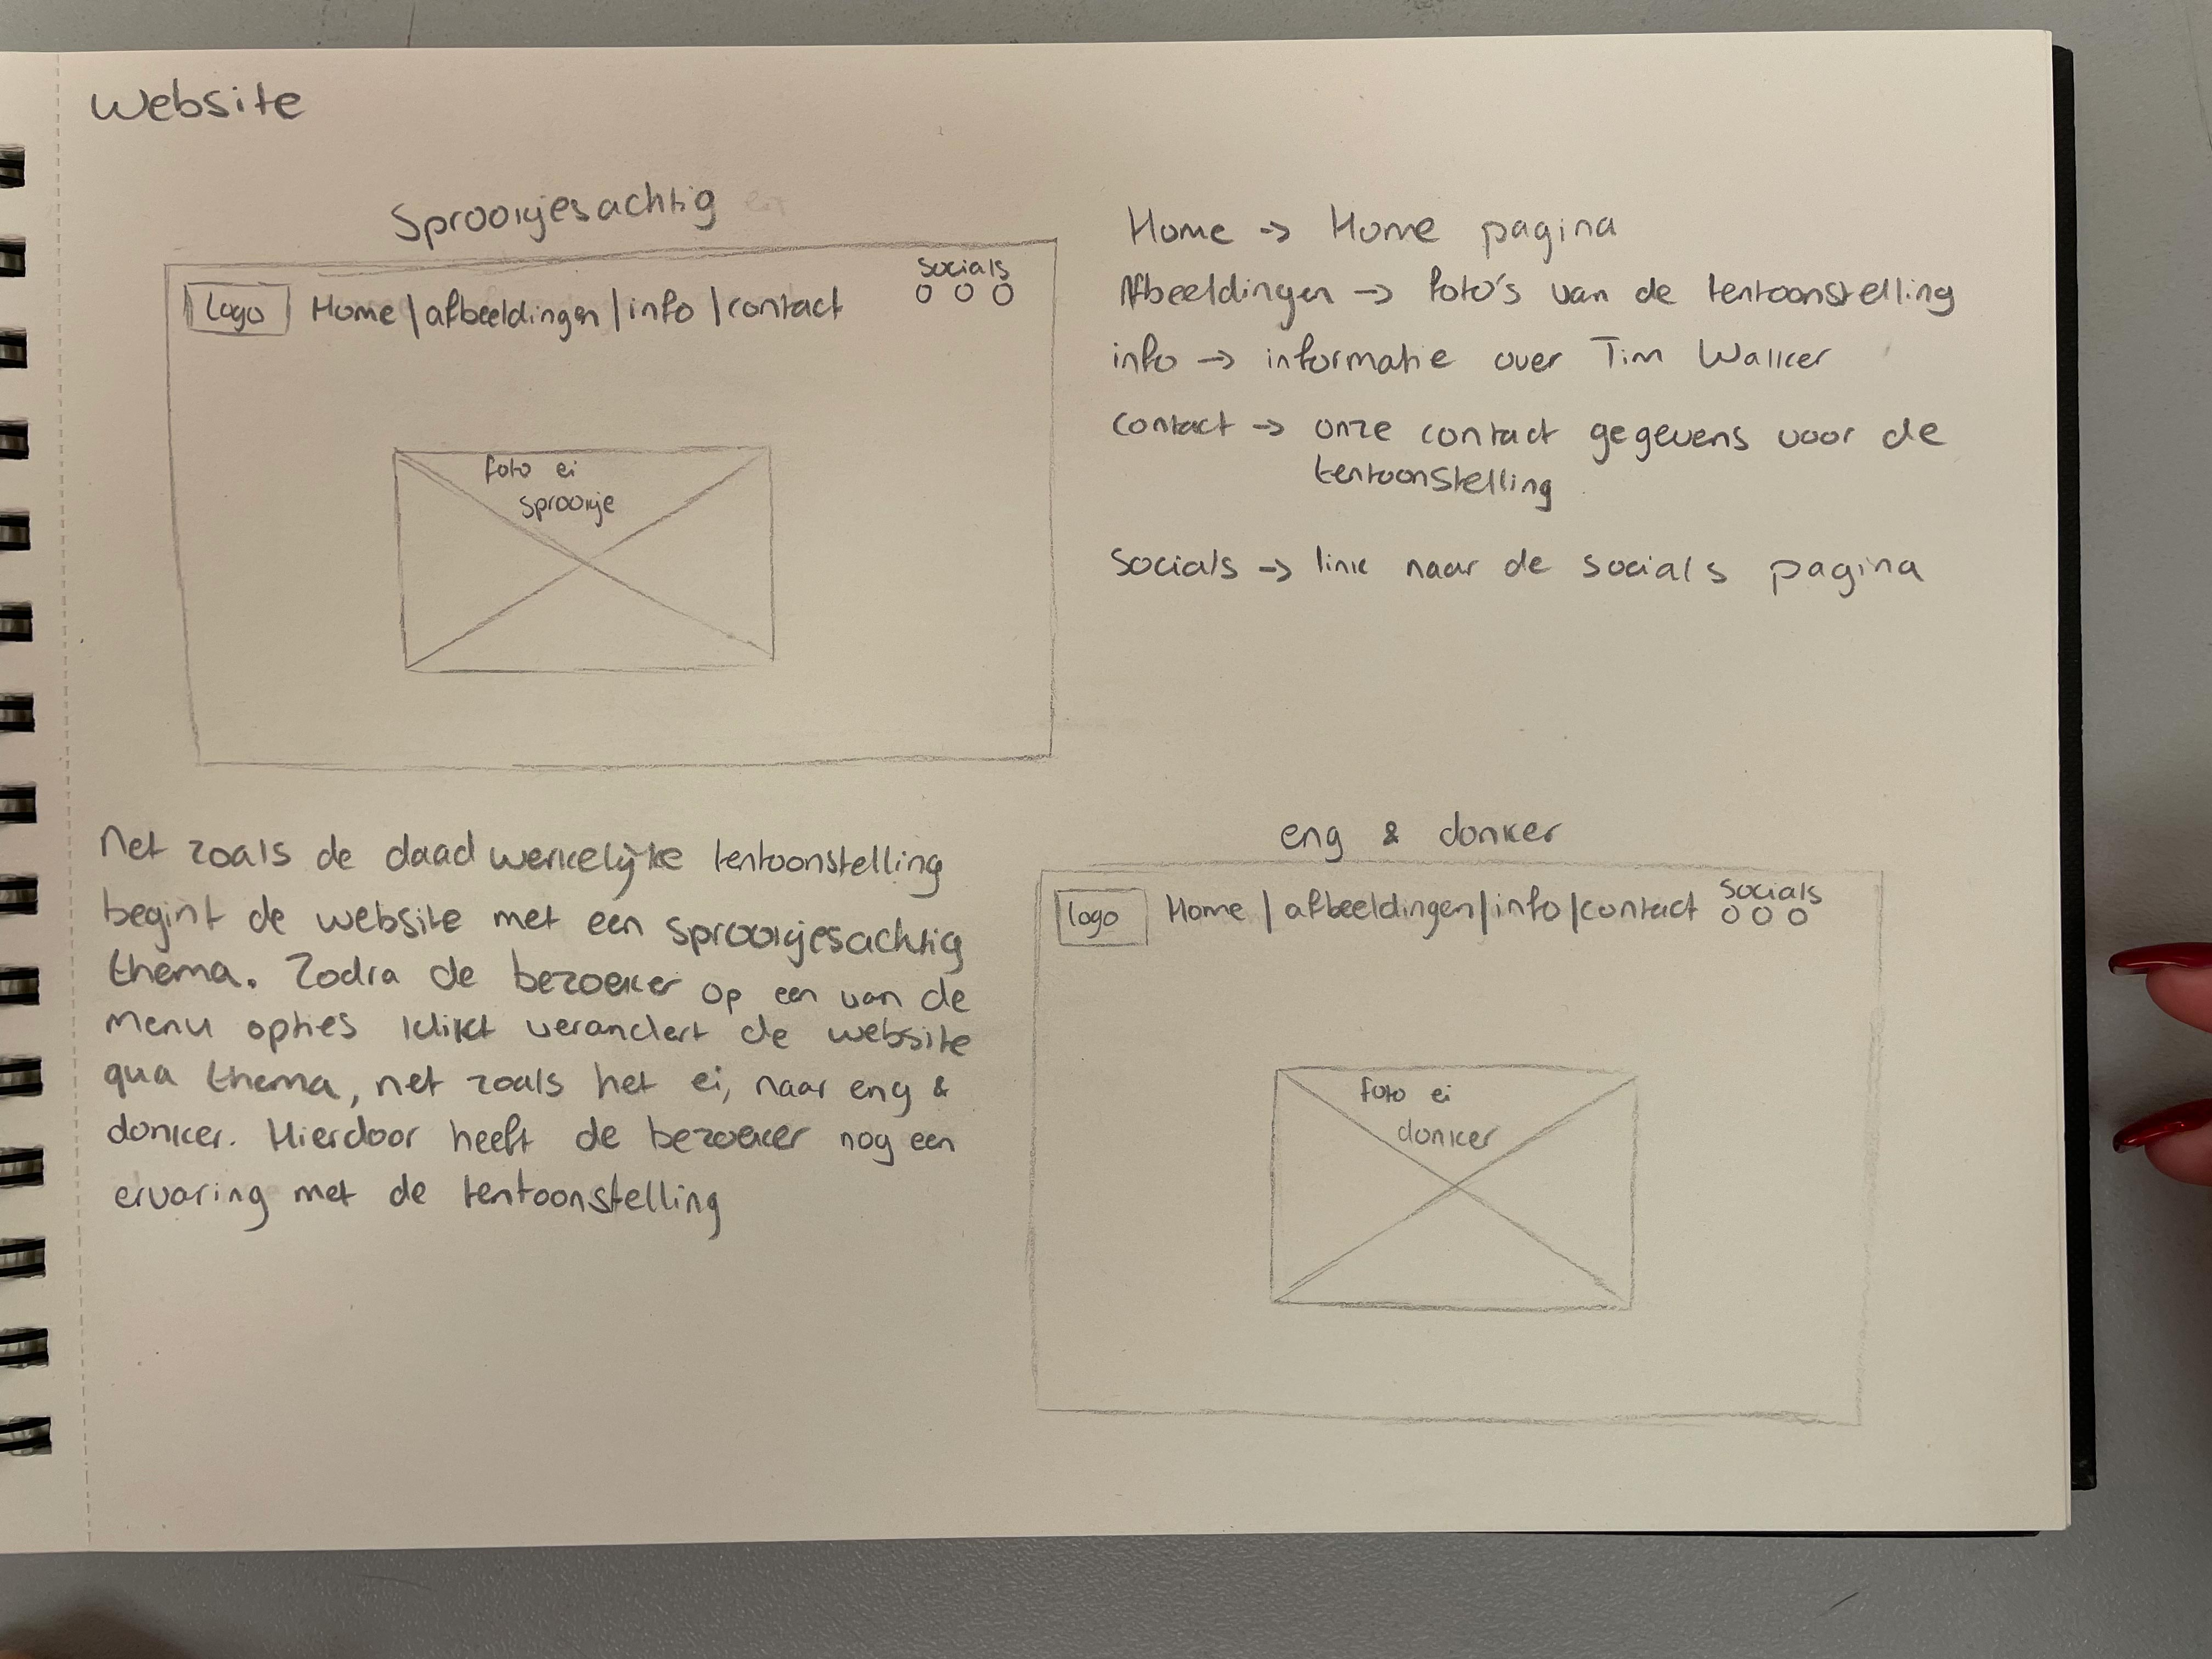 Website
Sprookjesachtig en
Logo Home | afbeeldingen | info | contact
Socials
foto ei
sprookje
Home -> Home pagina
Afbeeldingen -> foto's van de tentoonstelling
info -> informatie over Tim Walker
contact -> onze contact gegevens voor de
tentoonstelling
Socials -> link naar de socials pagina
Net zoals de daadwerkelijke tentoonstelling
begint de website met een sprookjesachtig
thema. Zodra de bezoeker op een van de
menu opties klikt verandert de website
qua thema, net zoals het ei, naar eng &
donker. Hierdoor heeft de bezoeker nog een
ervaring met de tentoonstelling
eng & donker
logo Home | afbeeldingen | info | contact
Socials
foto ei
donker